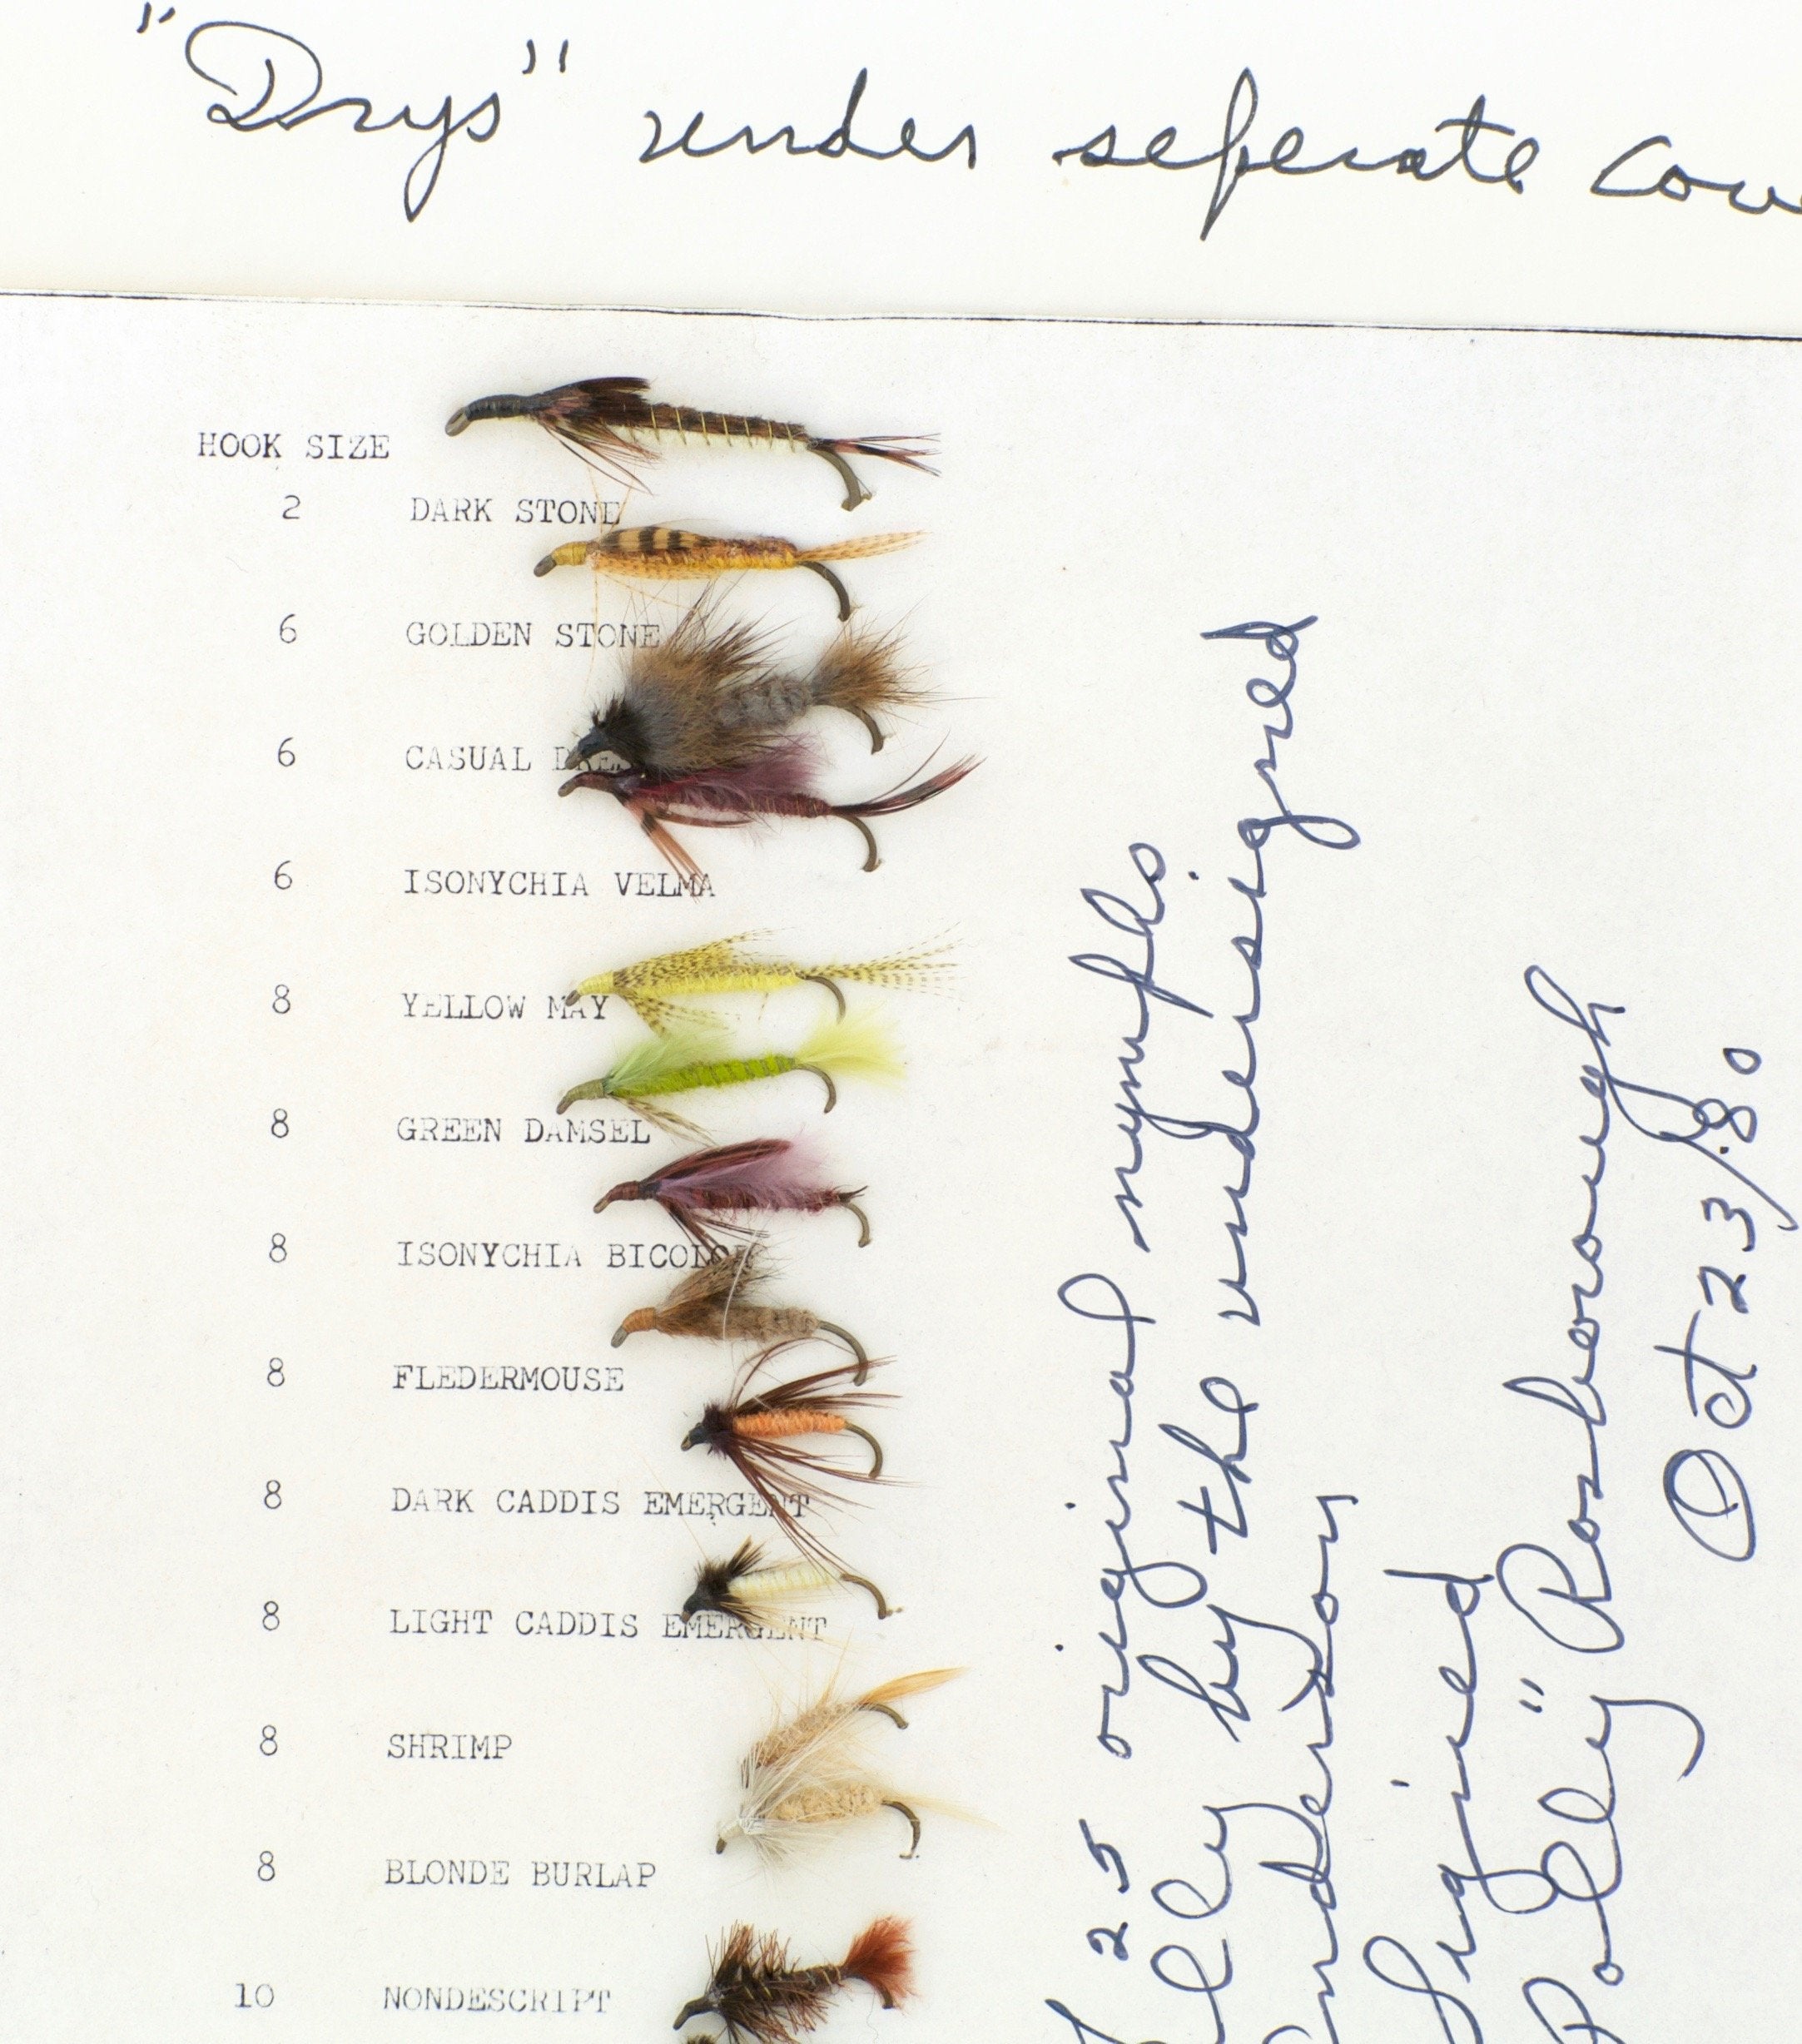 "Drys" under seperate
HOOK SIZE
2 DARK STONE
6 GOLDEN STONE
6 CASUAL
6 ISONYCHIA VELMA
8 YELLOW MAY
8 GREEN DAMSEL
8 ISONYCHIA BICOLOR
8 FLEDERMOUSE
8 DARK CADDIS EMERGENT
8 LIGHT CADDIS EMERGENT
8 SHRIMP
8 BLONDE BURLAP
10 NONDESCRIPT
25 original nymphs
by the undersigned
Signed
"Polly" Rosborough
Oct 23/80